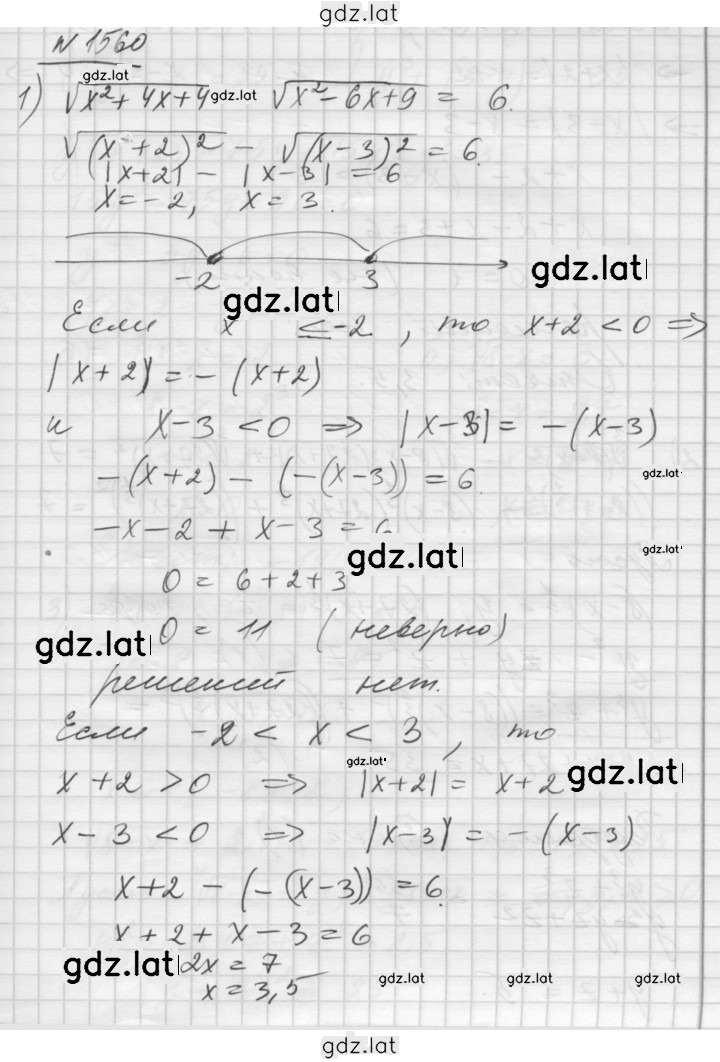 gdz.lat
N 1560
gdz.lat
1) √x²+4x+4 gdz.lat √x²-6x+9 = 6.
√(x+2)² - √(x-3)² = 6.
|x+2| - |x-3| = 6
x=-2, x=3.
-2 3 gdz.lat
gdz.lat
Если x ≤ -2, то x+2 < 0 ⇒
|x+2| = -(x+2)
и x-3 < 0 ⇒ |x-3| = -(x-3)
-(x+2) - (-(x-3)) = 6. gdz.lat
-x-2 + x-3 = 6
gdz.lat gdz.lat
0 = 6+2+3
gdz.lat 0 = 11 (неверно)
решений нет.
Если -2 < x < 3, то
gdz.lat
x+2 > 0 ⇒ |x+2| = x+2 gdz.lat
x-3 < 0 ⇒ |x-3| = -(x-3)
x+2 - (-(x-3)) = 6.
x+2+x-3=6
gdz.lat 2x = 7
x = 3,5 gdz.lat gdz.lat gdz.lat
gdz.lat